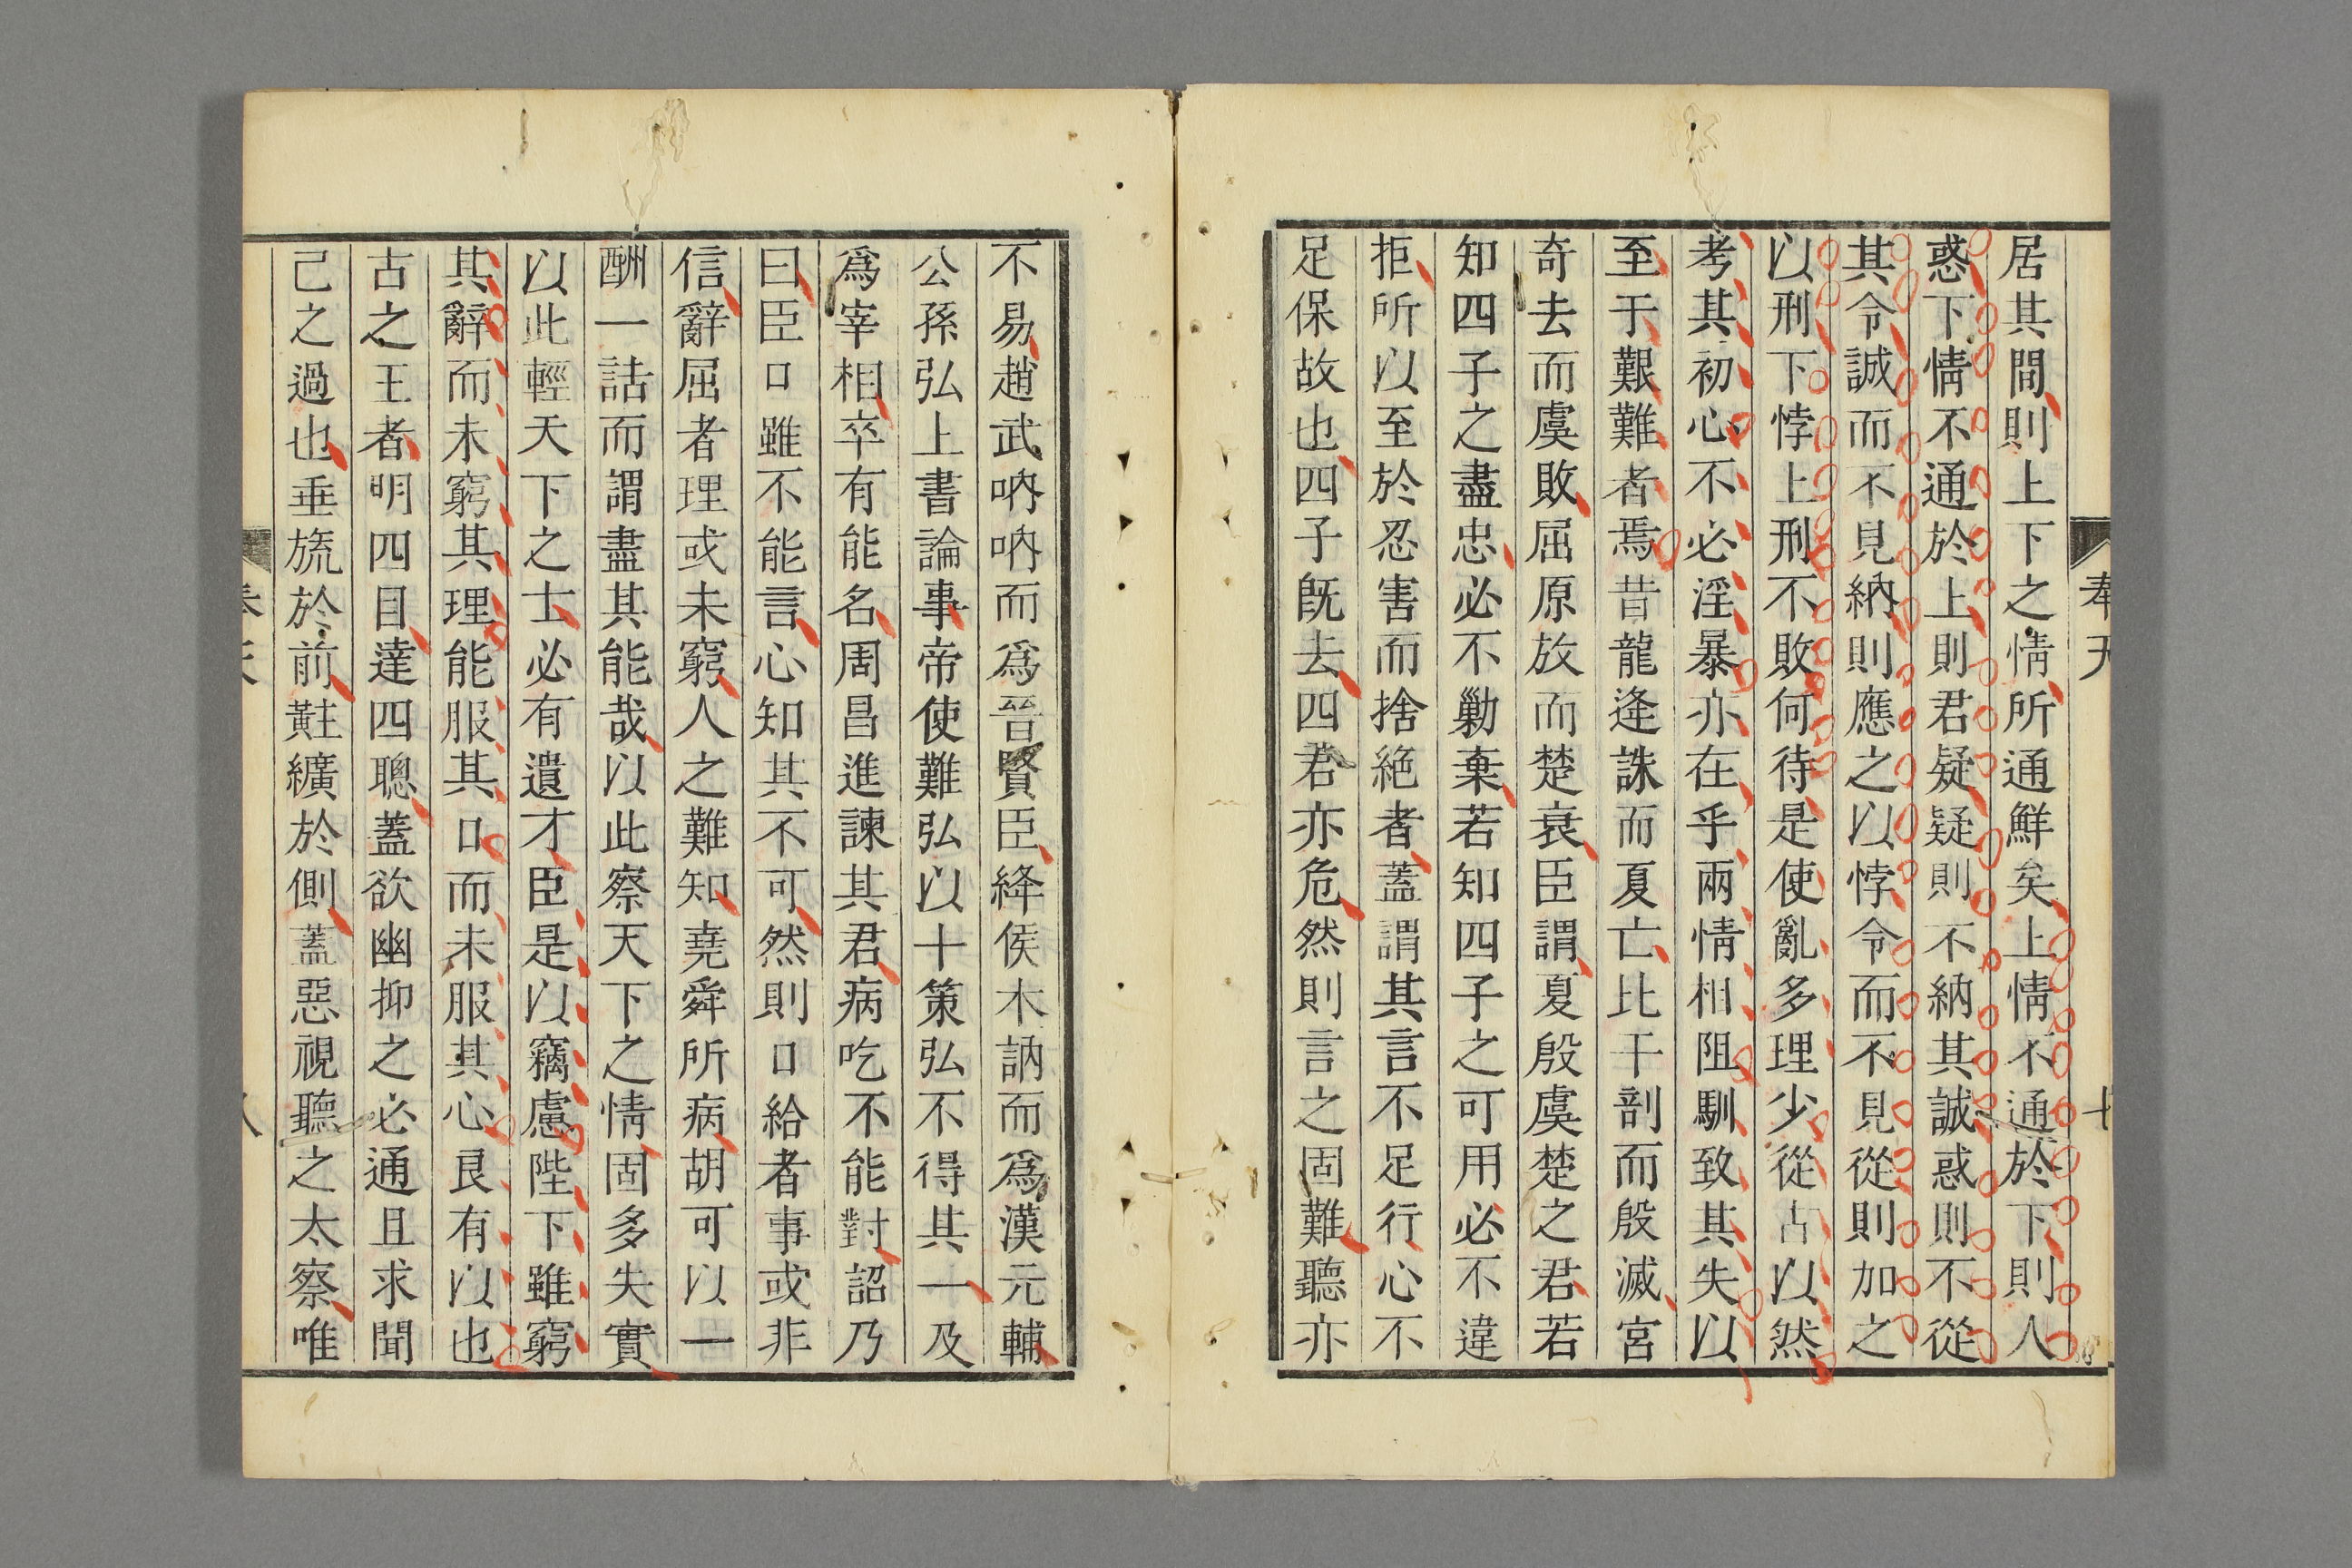 居其間則上下之情所通鮮矣上情不通於下則人
惑下情不通於上則君疑疑則不納其誠惑則不從
其令誠而不見納則應之以悖令而不見從則加之
以刑下悖上刑不敗何待是使亂多理少從古以然
考其初心不必淫暴亦在乎兩情相阻馴致其失以
至于艱難者焉昔龍逄誅而夏亡比干剖而殷滅宮
奇去而虞敗屈原放而楚衰臣謂夏殷虞楚之君若
知四子之盡忠必不勦棄若知四子之可用必不違
拒所以至於忍害而捨絕者蓋謂其言不足行心不
足保故也四子旣去四君亦危然則言之固難聽亦
奉天
七
不易趙武吶吶而爲晉賢臣絳侯木訥而爲漢元輔
公孫弘上書論事帝使難弘以十策弘不得其一及
爲宰相卒有能名周昌進諫其君病吃不能對詔乃
曰臣口雖不能言心知其不可然則口給者事或非
信辭屈者理或未窮人之難知堯舜所病胡可以一
酬一詰而謂盡其能哉以此察天下之情固多失實
以此輕天下之士必有遺才臣是以竊慮陛下雖窮
其辭而未窮其理能服其口而未服其心良有以也
古之王者明四目達四聰蓋欲幽抑之必通且求聞
己之過也垂旒於前黈纊於側蓋惡視聽之太察唯
奉天
八